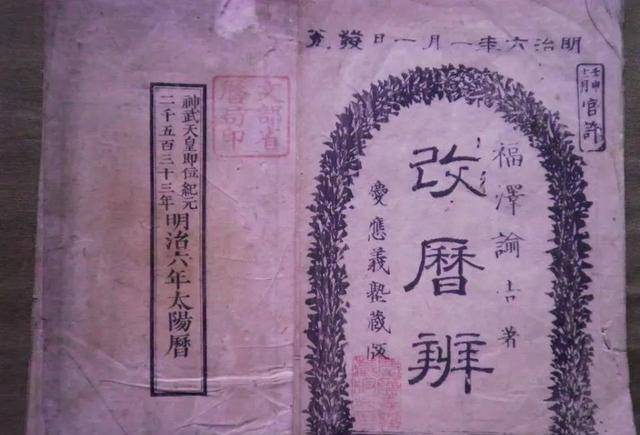 明治六年一月一日發兌
壬申
十一月
官許
福澤諭吉著
改暦辨
慶應義塾蔵版
文部省
暦局印
神武天皇即位紀元
二千五百三十三年
明治六年太陽暦